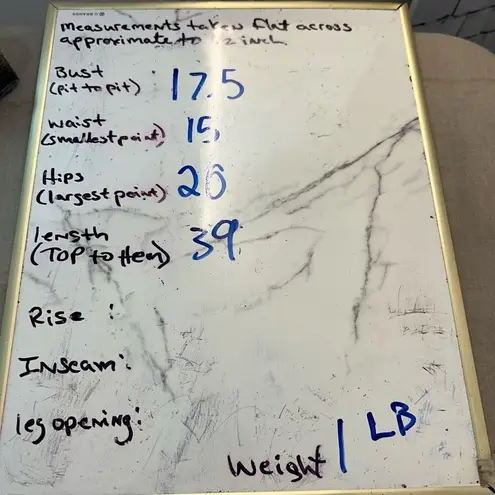 Measurements taken flat across
approximate to 1/2 inch
Bust 17.5
(pit to pit)
waist 15
(smallest point)
Hips 20
(largest point)
length 39
(TOP to Hem)
Rise :
INseam:
leg opening:
Weight 1 LB